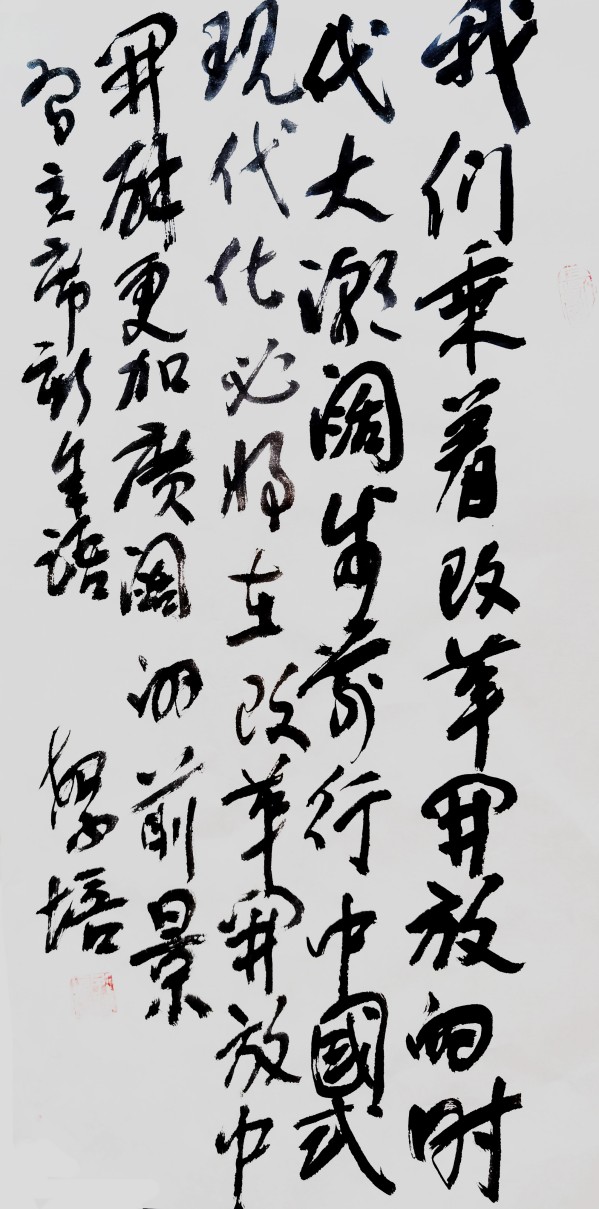 我们乘着改革開放的时
代大潮阔步前行中國式
现代化必将在改革開放中
開辟更加廣阔的前景
习主席新年金语
培